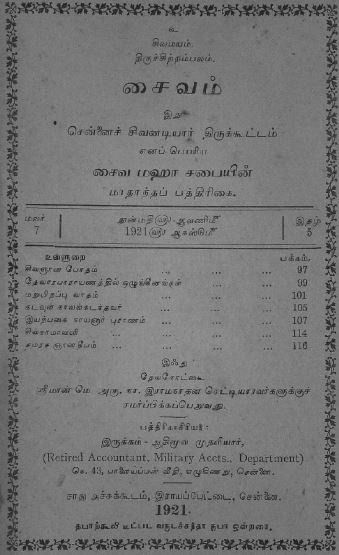 உ
சிவமயம்.
திருச்சிற்றம்பலம்.
சைவம்
இஃது
சென்னைச் சிவனடியார் திருக்கூட்டம்
எனப் பெயரிய
சைவ மஹா சபையின்
மாதாந்தப் பத்திரிகை.
மலர் 7
துன்மதி௵-ஆவணி௴
1921௵ ஆகஸ்டு௴
இதழ் 5
உள்ளுறை பக்கம்.
சிவஞான போதம் ... ... ... 97
தேவாரபாராயணத்தில் ... ... 99
மறுபிறப்பு வாதம் ... ... ... 101
கடவுள் காலங்கடந்தவர் ... ... ... 105
இயற்பகை நாயனார் புராணம் ... ... ... 107
சிவநாமாவளி ... ... ... 114
சமரச ஞானதீபம் ... ... ... 116
இஃது
தேவகோட்டை
ஸ்ரீமான் மெ. அரு. நா. இராமநாதன் செட்டியாரவர்களுக்குச்
சமர்ப்பிக்கப்பெறுவது.
பத்திராசிரியர்:
இருக்கம் - ஆதிமூல முதலியார்,
(Retired Accountant, Military Accts., Department)
செ. 43, வீதி, எழுகிணறு, சென்னை.
சாது அச்சுக்கூடம், இராயப்பேட்டை, சென்னை.
1921.
தபாற்கூலி உட்பட வருடச்சந்தா ரூபா ஒன்றரை.